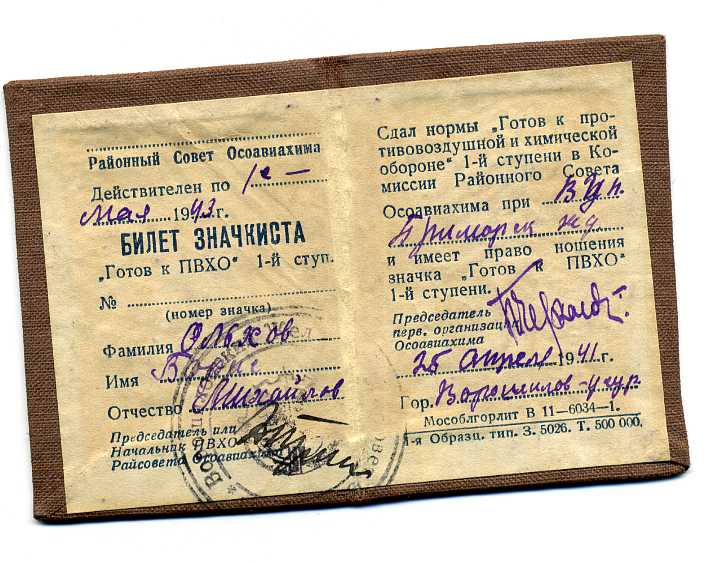 Районный Совет Осоавиахима
Действителен по 1е –
мая 1943 г.
БИЛЕТ ЗНАЧКИСТА
„Готов к ПВХО“ 1-й ступ.
№
(номер значка)
Фамилия Ольхов
Имя Борис
Отчество Михайлов
Председатель или
Начальник ПВХО
Райсовета Осоавиахима
Сдал нормы „Готов к про-
тивовоздушной и химической
обороне“ 1-й ступени в Ко-
миссии Районного Совета
Осоавиахима при
Приморск жд
и имеет право ношения
значка „Готов к ПВХО“
1-й ступени.
Председатель
перв. организации
Осоавиахима
25 апреля 1941 г.
Гор. Ворошилов-уссур.
Мособлгорлит В 11—6034—1.
1-я Образц. тип. З. 5026. Т. 500 000.